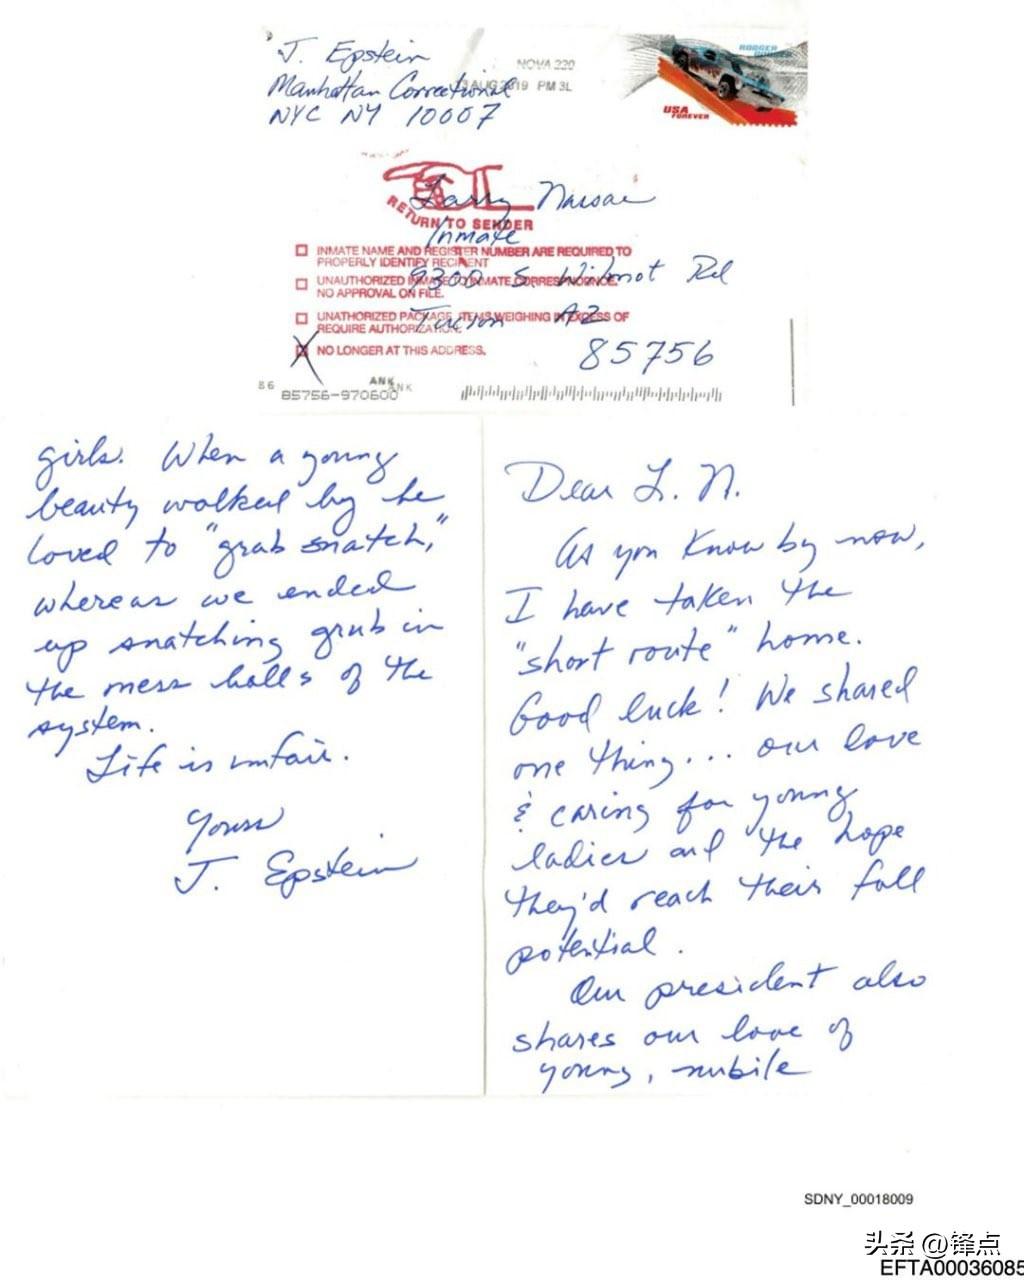 J. Epstein
Manhattan Correctional
NYC NY 10007
NOVA 220
13 AUG 2019 PM 3L
RODGER DODGER
USA
FOREVER
RETURN TO SENDER
Larry Nassar
Inmate
9300 S. Wilmot Rd
Tucson AZ
85756
INMATE NAME AND REGISTER NUMBER ARE REQUIRED TO
PROPERLY IDENTIFY RECIPIENT
UNAUTHORIZED INMATE TO INMATE CORRESPONDENCE.
NO APPROVAL ON FILE.
UNATHORIZED PACKAGE. ITEMS WEIGHING IN EXCESS OF
REQUIRE AUTHORIZATION.
X NO LONGER AT THIS ADDRESS.
86
ANK
ANK
85756-970600
Dear L. N.
As you know by now,
I have taken the
"short route" home.
Good luck! We shared
one thing... our love
& caring for young
ladies and the hope
they'd reach their full
potential.
Our president also
shares our love of
young, nubile
girls. When a young
beauty walked by he
loved to "grab snatch,"
whereas we ended
up snatching grub in
the mess halls of the
system.
Life is unfair.
Yours
J. Epstein
SDNY_00018009
头条 @锋点
EFTA00036085